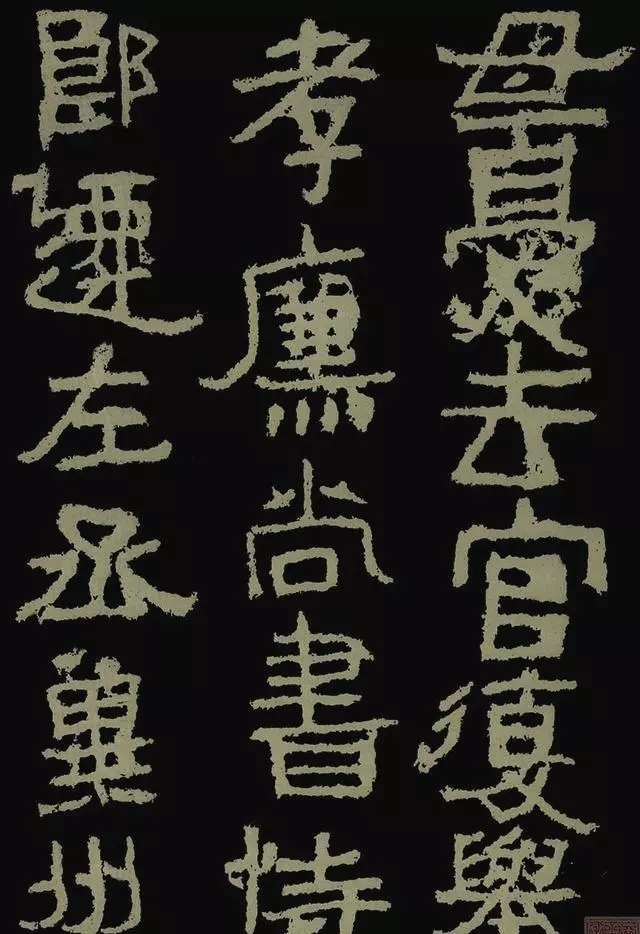 母憂去官復舉
孝廉尚書侍
郎遷左丞冀州